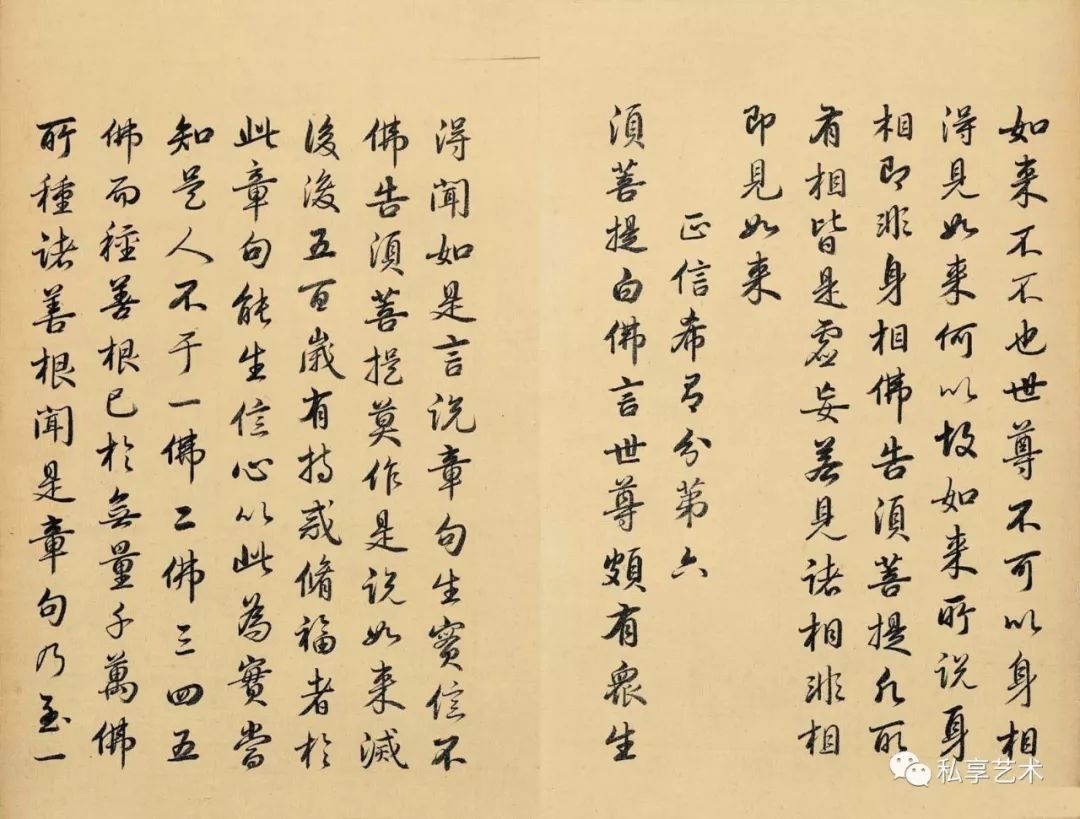 如来不不也世尊不可以身相
得見如来何以故如来所说身
相即非身相佛告須菩提凡所
有相皆是虚妄若見诸相非相
即見如来
正信希有分第六
須菩提白佛言世尊頗有衆生
得聞如是言说章句生實信不
佛告須菩提莫作是说如来滅
後後五百歲有持戒脩福者於
此章句能生信心以此為實當
知是人不于一佛二佛三四五
佛而種善根已於無量千萬佛
所種诸善根聞是章句乃至一
私享艺术